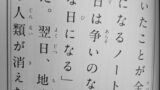 いたことが全
になるノート
日は争いのな
な日になる」
に、翌日、地
人類が消えた